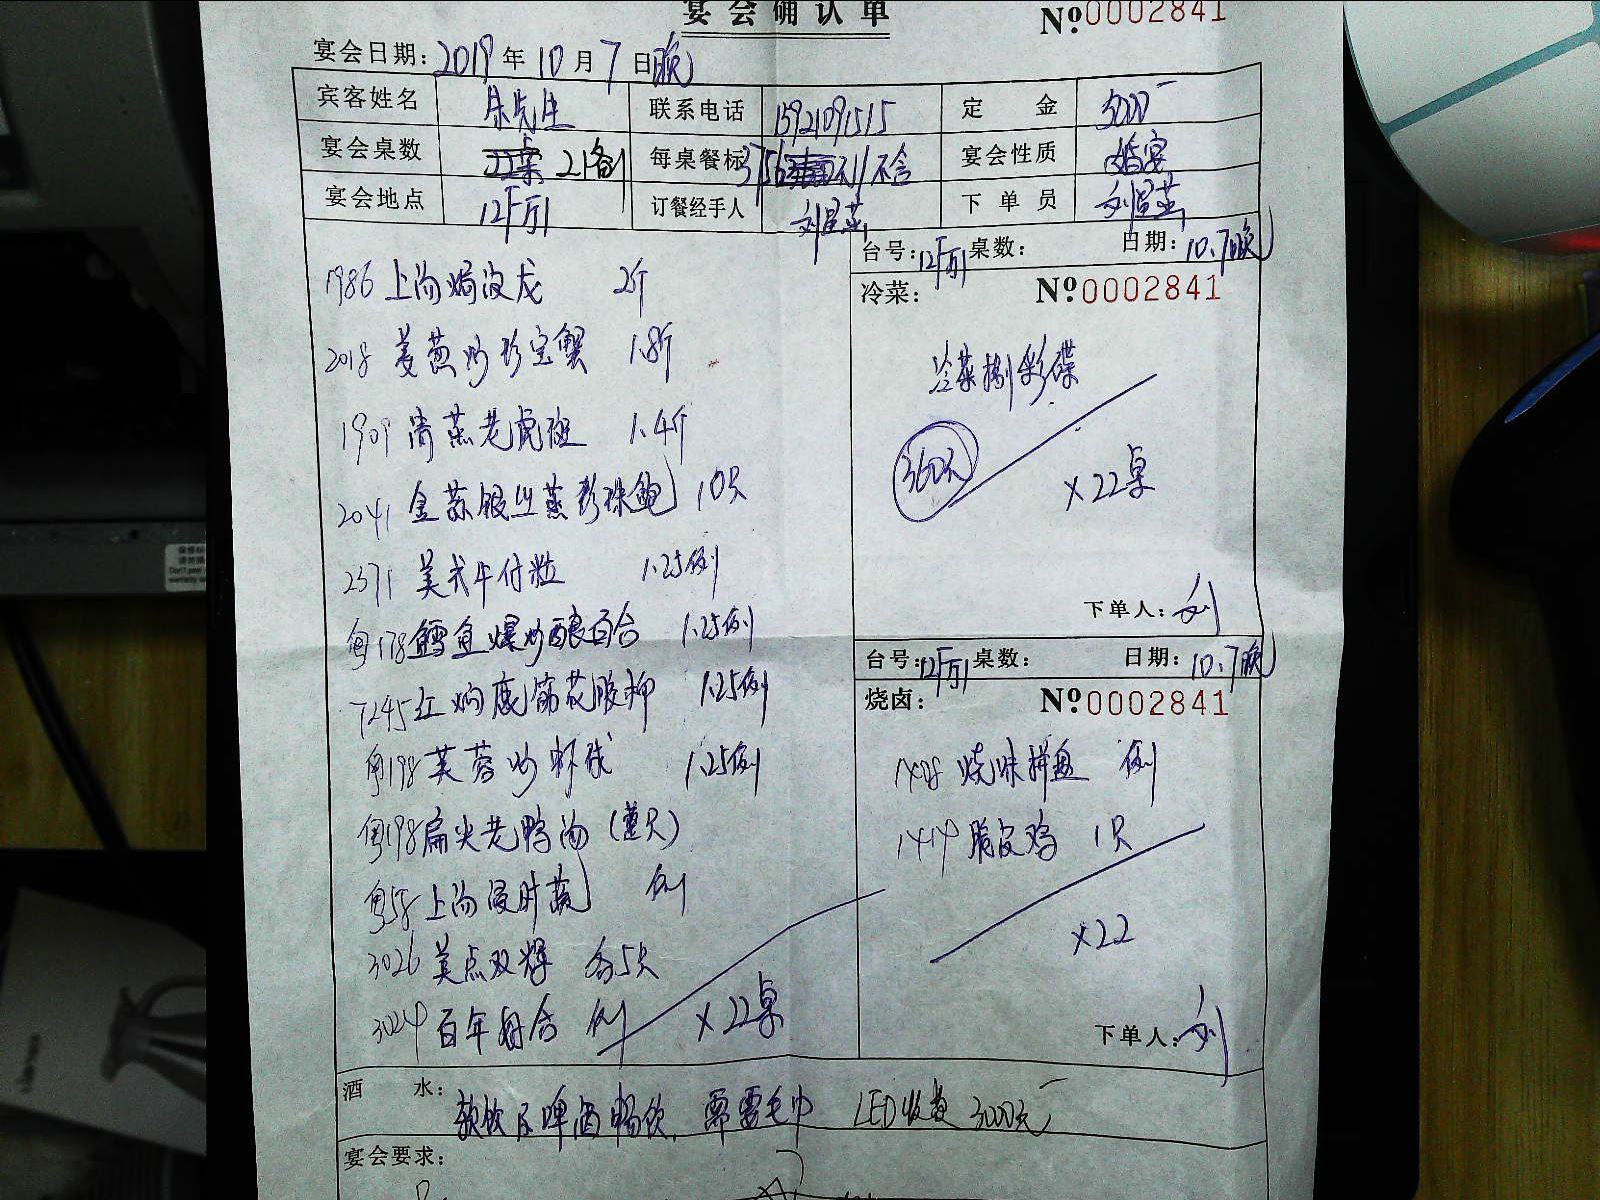 宴会确认单 №0002841
宴会日期: 2019年10月7日(晚)
宾客姓名 朱先生 联系电话 1592109,515 定金 3000
宴会桌数 21备1 每桌餐标 不含 宴会性质 婚宴
宴会地点 12F厅1 订餐经手人 刘显英 下单员 刘显英
台号: 12F厅1 桌数: 日期: 10.7晚
1986 上汤焗波龙 2斤
2018 姜葱炒珍宝蟹 1.8斤
1909 清蒸老虎斑 1.4斤
2041 金蒜银丝蒸珍珠鲍 10只
2371 美式牛仔粒 1.25例
粤178 鳕鱼爆炒酿百合 1.25例
7245 红焖鹿筋花胶
粤198 芙蓉炒虾球 1.25例
粤198 扁尖老鸭汤 (壹只)
粤58 上汤浸时蔬 例
3026 美点双辉 各5只
3024 百年好合 例 ×22桌
冷菜: №0002841
冷菜捌彩碟
360元
×22桌
下单人: 刘
台号: 12F厅1 桌数: 日期: 10.7晚
烧卤: №0002841
1408 烧味拼盘 例
1414 脆皮鸡 1只
×22
下单人: 刘
酒水: 软饮及啤酒畅饮, 需要毛巾 LED收费3000元
宴会要求: